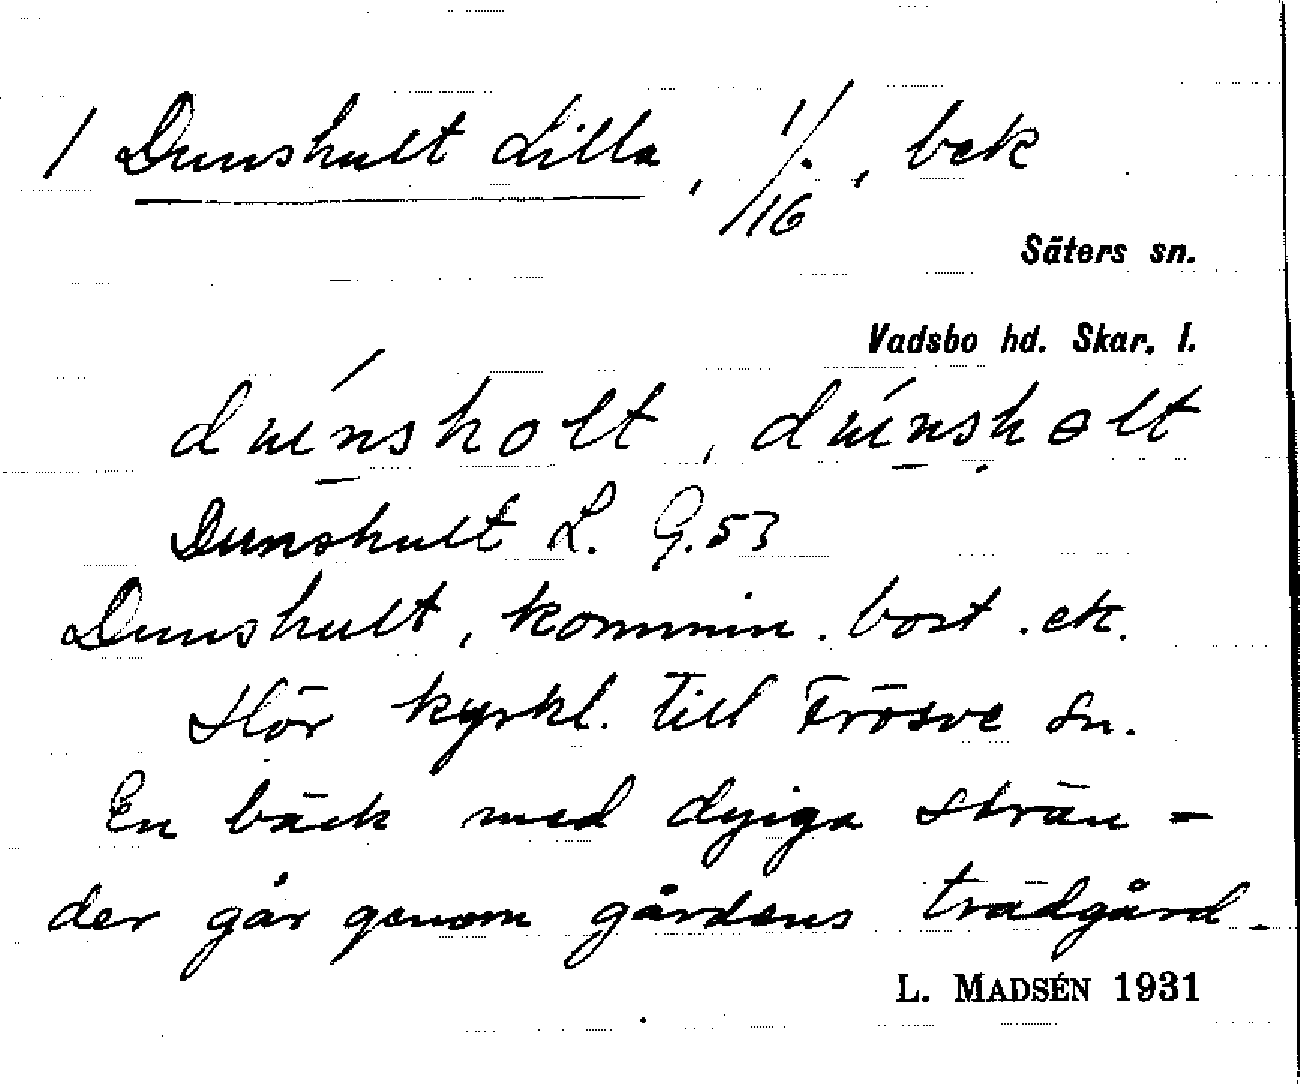 1 Dunshult Lilla, 1/16, bek
Säters sn.
Vadsbo hd. Skar. l.
duńsholt, duńsholt
Dunshult L. G. 53
Dunshult, kommin. bost. ek.
Hör kyrkl. till Frösve sn.
En bäck med dyiga strän-
der går genom gårdens trädgård.
L. MADSÉN 1931